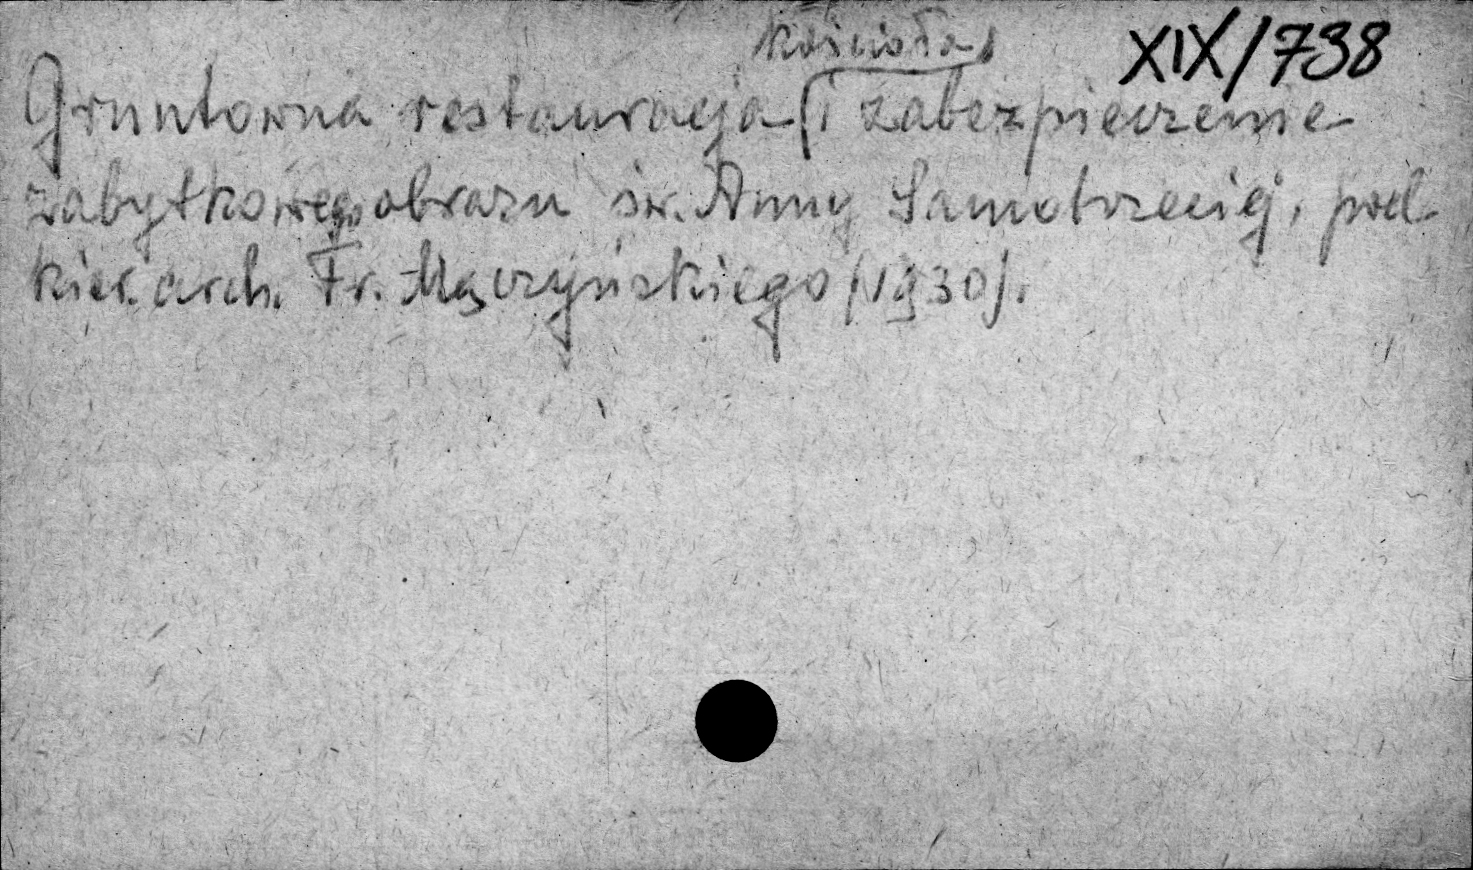 kościoła,
XIX/738
Gruntowna restauracja i zabezpieczenie
zabytkowego obrazu św. Anny Samotrzeciej, pod
kier. arch. Fr. Mączyńskiego (1930).